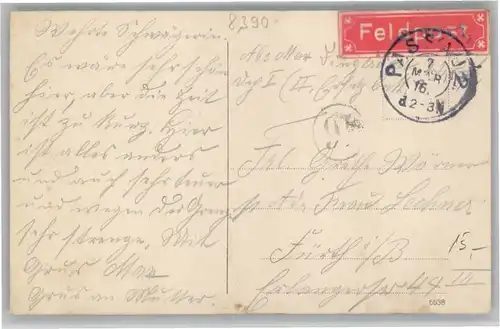 8390
Werte Schwägerin.
Es wäre sehr schön
hier, aber die Zeit
ist zu kurz. Hier
ist alles anders
und auch sehr teuer
und wegen der Grenz
sehr strenge. Mit
Gruss Max
Gruss an Mutter.
Feldpost
Abs Max
PASSAU
7
MAR
16.
12-3N
Frl Grethe Wörner
Adr Frau Lochner
Fürth i/B
Erlangerstr 49 III
15,-
6538